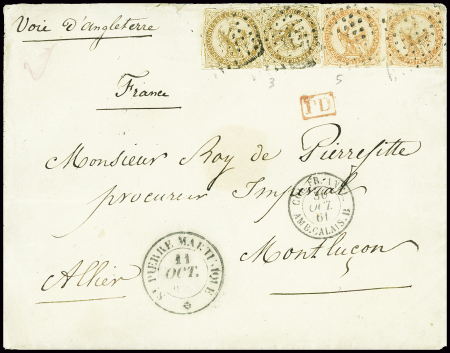 Voie d'Angleterre
3
5
France
PD
Monsieur Roy de Pierrefitte
procureur Impérial
AMB. CALAIS. B
OCT.
61
Montluçon
ST PIERRE MARTINIQUE
11
OCT.
Allier